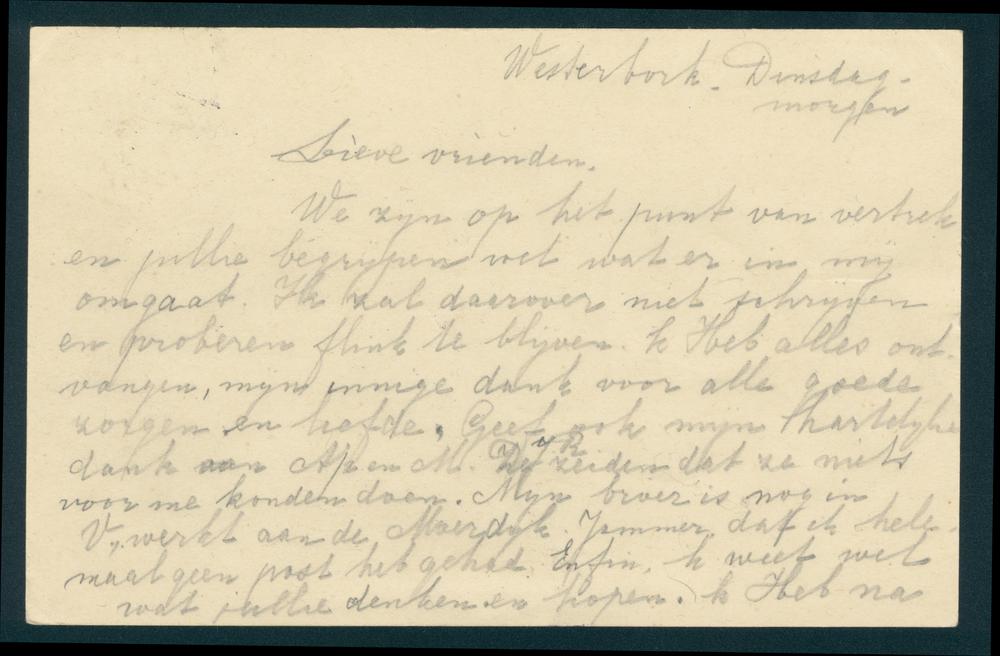 Westerbork. Dinsdag-
morgen
Lieve vrienden.
We zijn op het punt van vertrek
en jullie begrijpen wel wat er in mij
omgaat. Ik zal daarover niet schrijven
en proberen flink te blijven. Ik Heb alles ont-
vangen, mijn innige dank voor alle goede
zorgen en liefde. Geef ook mijn hartelijke
dank aan Ap en M. zeiden dat ze niets
voor me konden doen. Mijn broer is nog in
V., werkt aan de Moerdijk. Jammer, dat ik hele-
maal geen post heb gehad. Enfin, ik weet wel
wat jullie denken en hopen. Ik Heb na